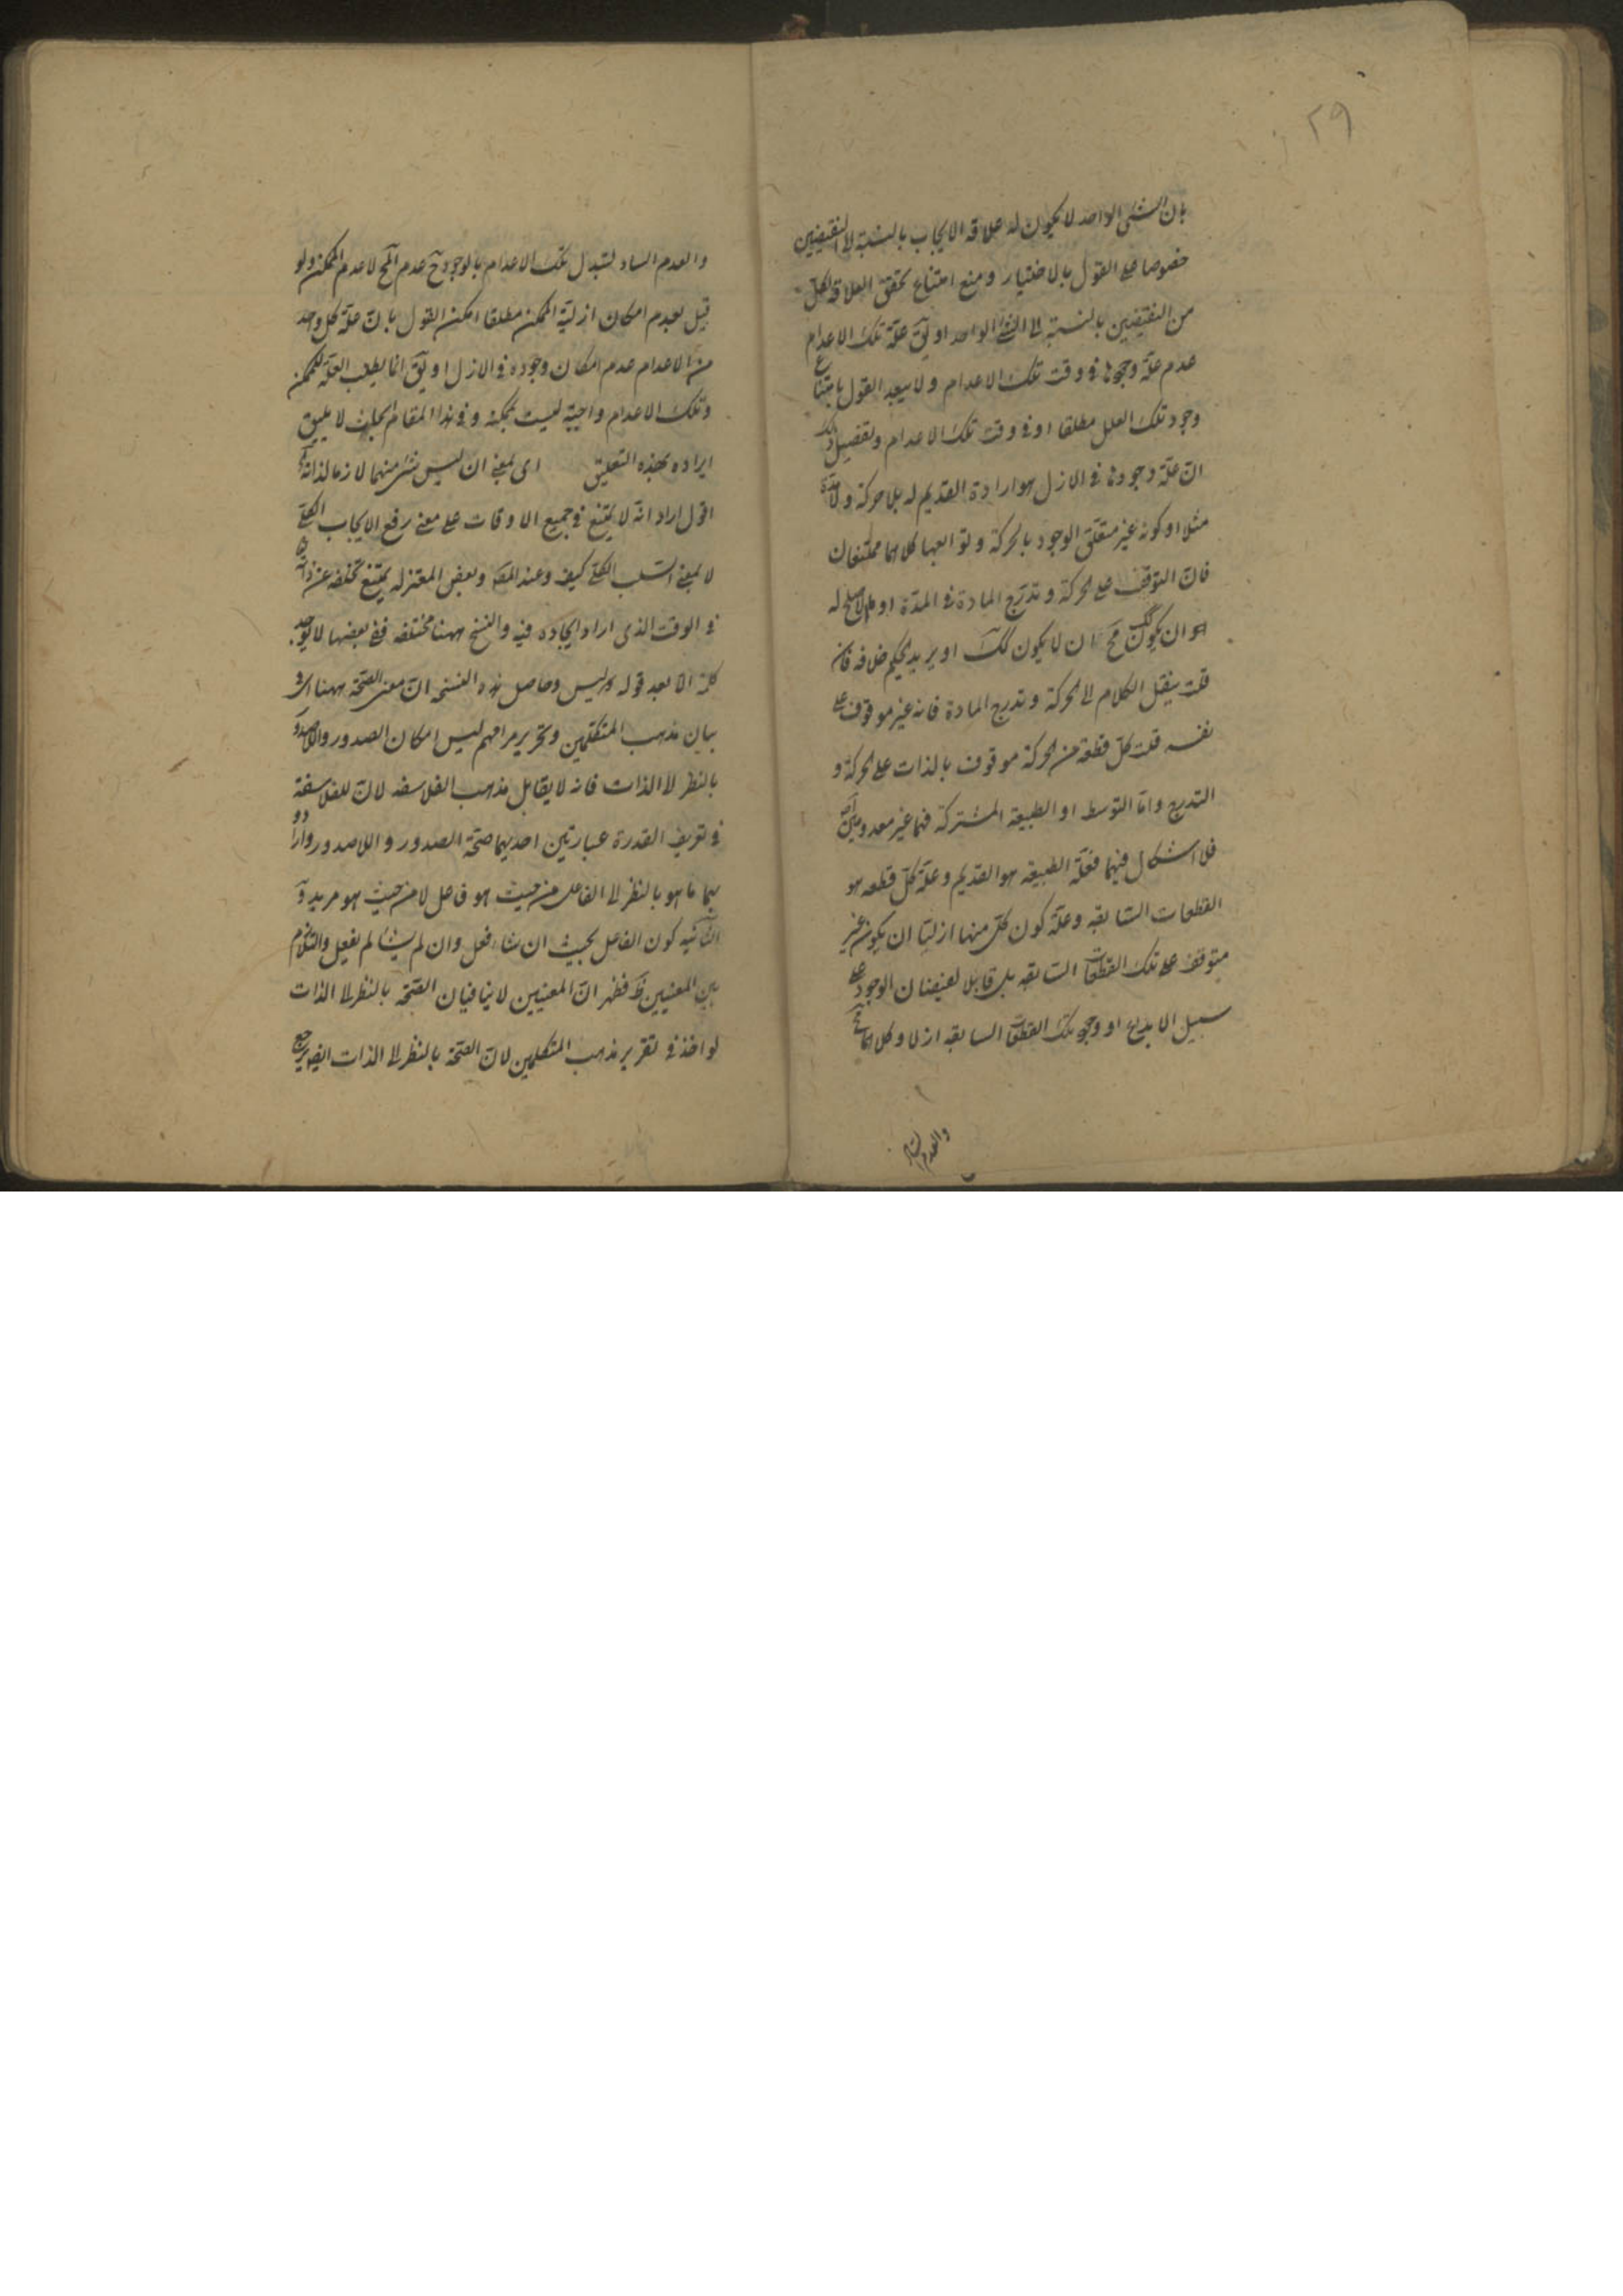 ٢٩
بان الشئ الواحد لا يكون له علاقة الايجاب بالنسبة لا النقيضين
خصوصا على القول بالاختيار ومنع امتناع تحقق العلاقة لكل
من النقيضين بالنسبة الى الشئ الواحد او يق علة تلك الاعدام
عدم علة وجودها فى وقت تلك الاعدام ولا يبعد القول بامتناع
وجود تلك العلل مطلقا او فى وقت تلك الاعدام وتفصيل ذلك
ان علة وجودها فى الازل هو ارادة القديم له بلا حركة ولا مدة
مثلا او كونه غير متعلق الوجود بالحركة وتوابعها كلاهما ممتنعان
فان التوقف على الحركة وتدرج المادة فى المدة او الاصلح له
هو ان يكون كك مح ان لا يكون كك او يريد الحكيم خلافه فان
قلت ينقل الكلام الى الحركة وتدرج المادة فانه غير موقوف على
نفسه قلت كل قطعة من الحركة موقوف بالذات على الحركة و
التدرج واما التوسط او الطبيعة المشتركة فهما غير معدومين
فلا اشكال فيهما فعلة الطبيعة هو القديم وعلة كل قطعه هو
القطعات السابقه وعلة كون كل منها ازليا ان يكون غير
متوقف على تلك القطعات السابقه بل قابلا لفيضان الوجود على
سبيل الابداع او وجود تلك القطعات السابقه ازلا وكلاهما مح
والعدم
والعدم الساد لتبدل تلك الاعدام بالوجود ح عدم المح لا عدم الممكن ولو
قيل بعدم امكان ازلية الممكن مطلقا امكن القول بان علة كل واحد
من الاعدام عدم امكان وجوده فى الازل او يق انما يطلب العلة للممكن
وتلك الاعدام واجبة ليست بممكنة وفى هذا المقام ابحاث لا يليق
ايراده بهذه التعليق اى بمعنى ان ليس شئ منهما لازما لذاته
اقول اراد انه لا يمتنع فى جميع الاوقات على معنى رفع الايجاب الكلى
لا بمعنى السلب الكلى كيف وعند المص وبعض المعتزله يمتنع تخلفه عن ذاته
فى الوقت الذى اراد ايجاده فيه والنسخ ههنا مختلفه ففى بعضها لا يوجد
كلمة الا بعد قوله وليس وحاصل هذه النسخه ان معنى الصحة ههنا فى
بيان مذهب المتكلمين وتحرير مرامهم ليس امكان الصدور واللاصدور
بالنظر لا الذات فانه لا يقابل مذهب الفلاسفه لان للفلاسفة
فى تعريف القدرة عبارتين احديهما صحة الصدور واللاصدور وارادوا
بهما ما هو بالنظر لا الفاعل من حيث هو فاعل لا من حيث هو مريد و
الثانيه كون الفاعل بحيث ان شاء فعل وان لم يشأ لم يفعل والتلازم
بين المعنيين ظ فظهر ان المعنيين لا ينافيان الصحة بالنظر لا الذات
لو اخذ فى تقرير مذهب المتكلمين لان الصحة بالنظر لا الذات ايضا يرجع